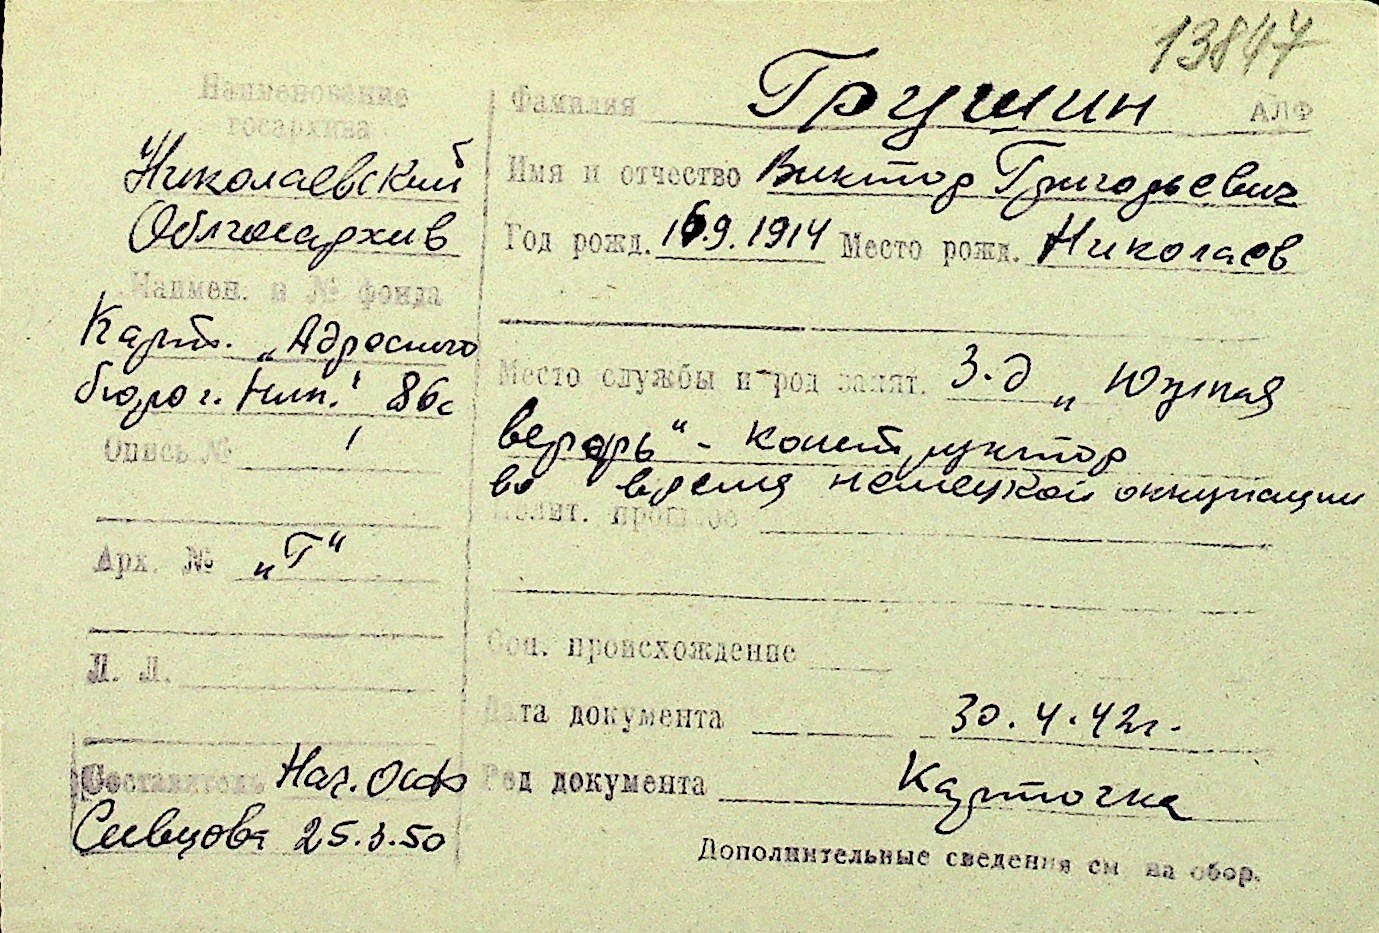 13847
Наименование
госархива
Николаевский
Облгосархив
Наимен. и № фонда
Карт. „Адресного
бюро г. Ник." 86с
Опись №
Арх. № „Г"
Л. Л.
Составитель Нач. ОИФ
Сивцова 25.3.50
Фамилия Грушин АЛФ
Имя и отчество Виктор Григорьевич
Год рожд. 9.1914 Место рожд. Николаев
Место службы и род занят. З-д „Южная
верфь" - конструктор
во время немецкой оккупации
Полит. прошлое
Соц. происхождение
Дата документа 30.4.42г.
Род документа Карточка
Дополнительные сведения см на обор.